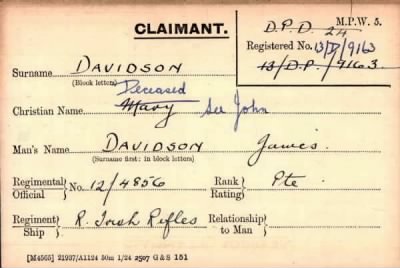 CLAIMANT.
D.P.D. 24 M.P.W. 5.
Registered No. 13/D/9163
13/D.P./9163
Surname DAVIDSON
(Block letters)
Deceased
Christian Name Mary See John
Man's Name DAVIDSON James.
(Surname first: in block letters)
Regimental Official } No. 12/4856 Rank Rating } Pte
Regiment Ship } R. Irish Rifles Relationship to Man }
[M4565] 21937/A1124 50m 1/24 2507 G & S 151